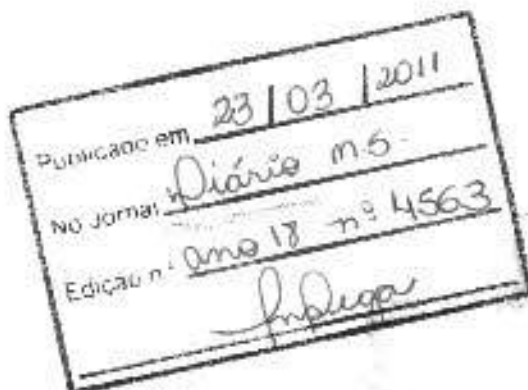 Publicado em 23/03/2011
No Jornal Diário M.S.
Edição nº ano 18 nº 4563